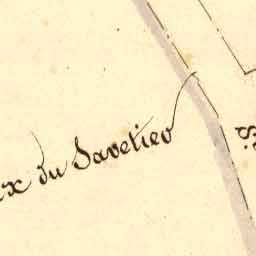 x du Savetier